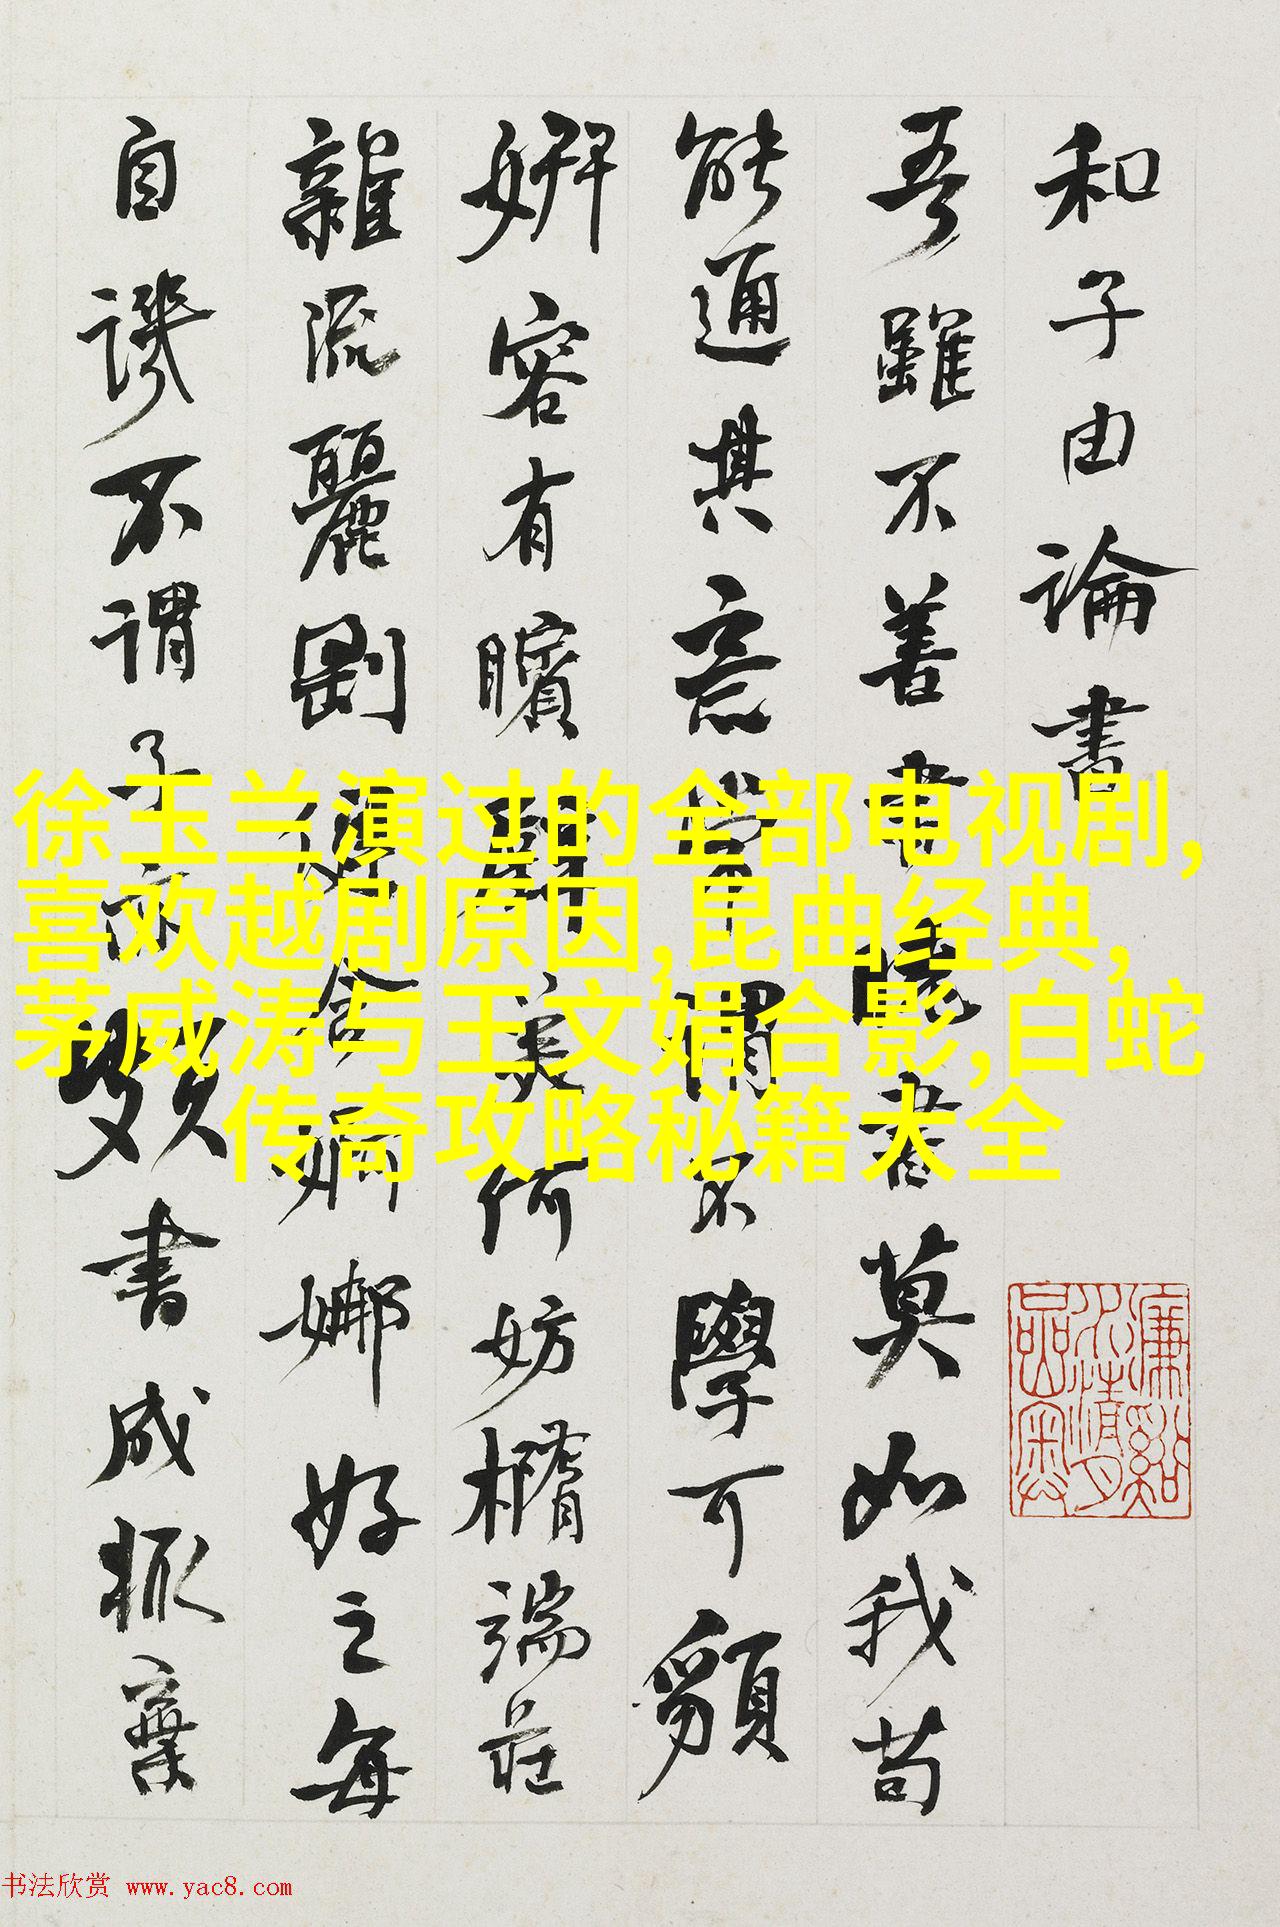 和子由論書
吾雖不善書曉書莫如我苟
能通其意常謂不學可䫉
妍容有矉璧美何妨橢端莊
雜流麗剛健含婀娜好之每
自譏不謂子亦頗書成輒棄
徐玉兰演过的全部电视剧,
喜欢越剧原因,昆曲经典,
茅威涛与王文娟合影,白蛇
传奇攻略秘籍大全
书法欣赏 www.yac8.com